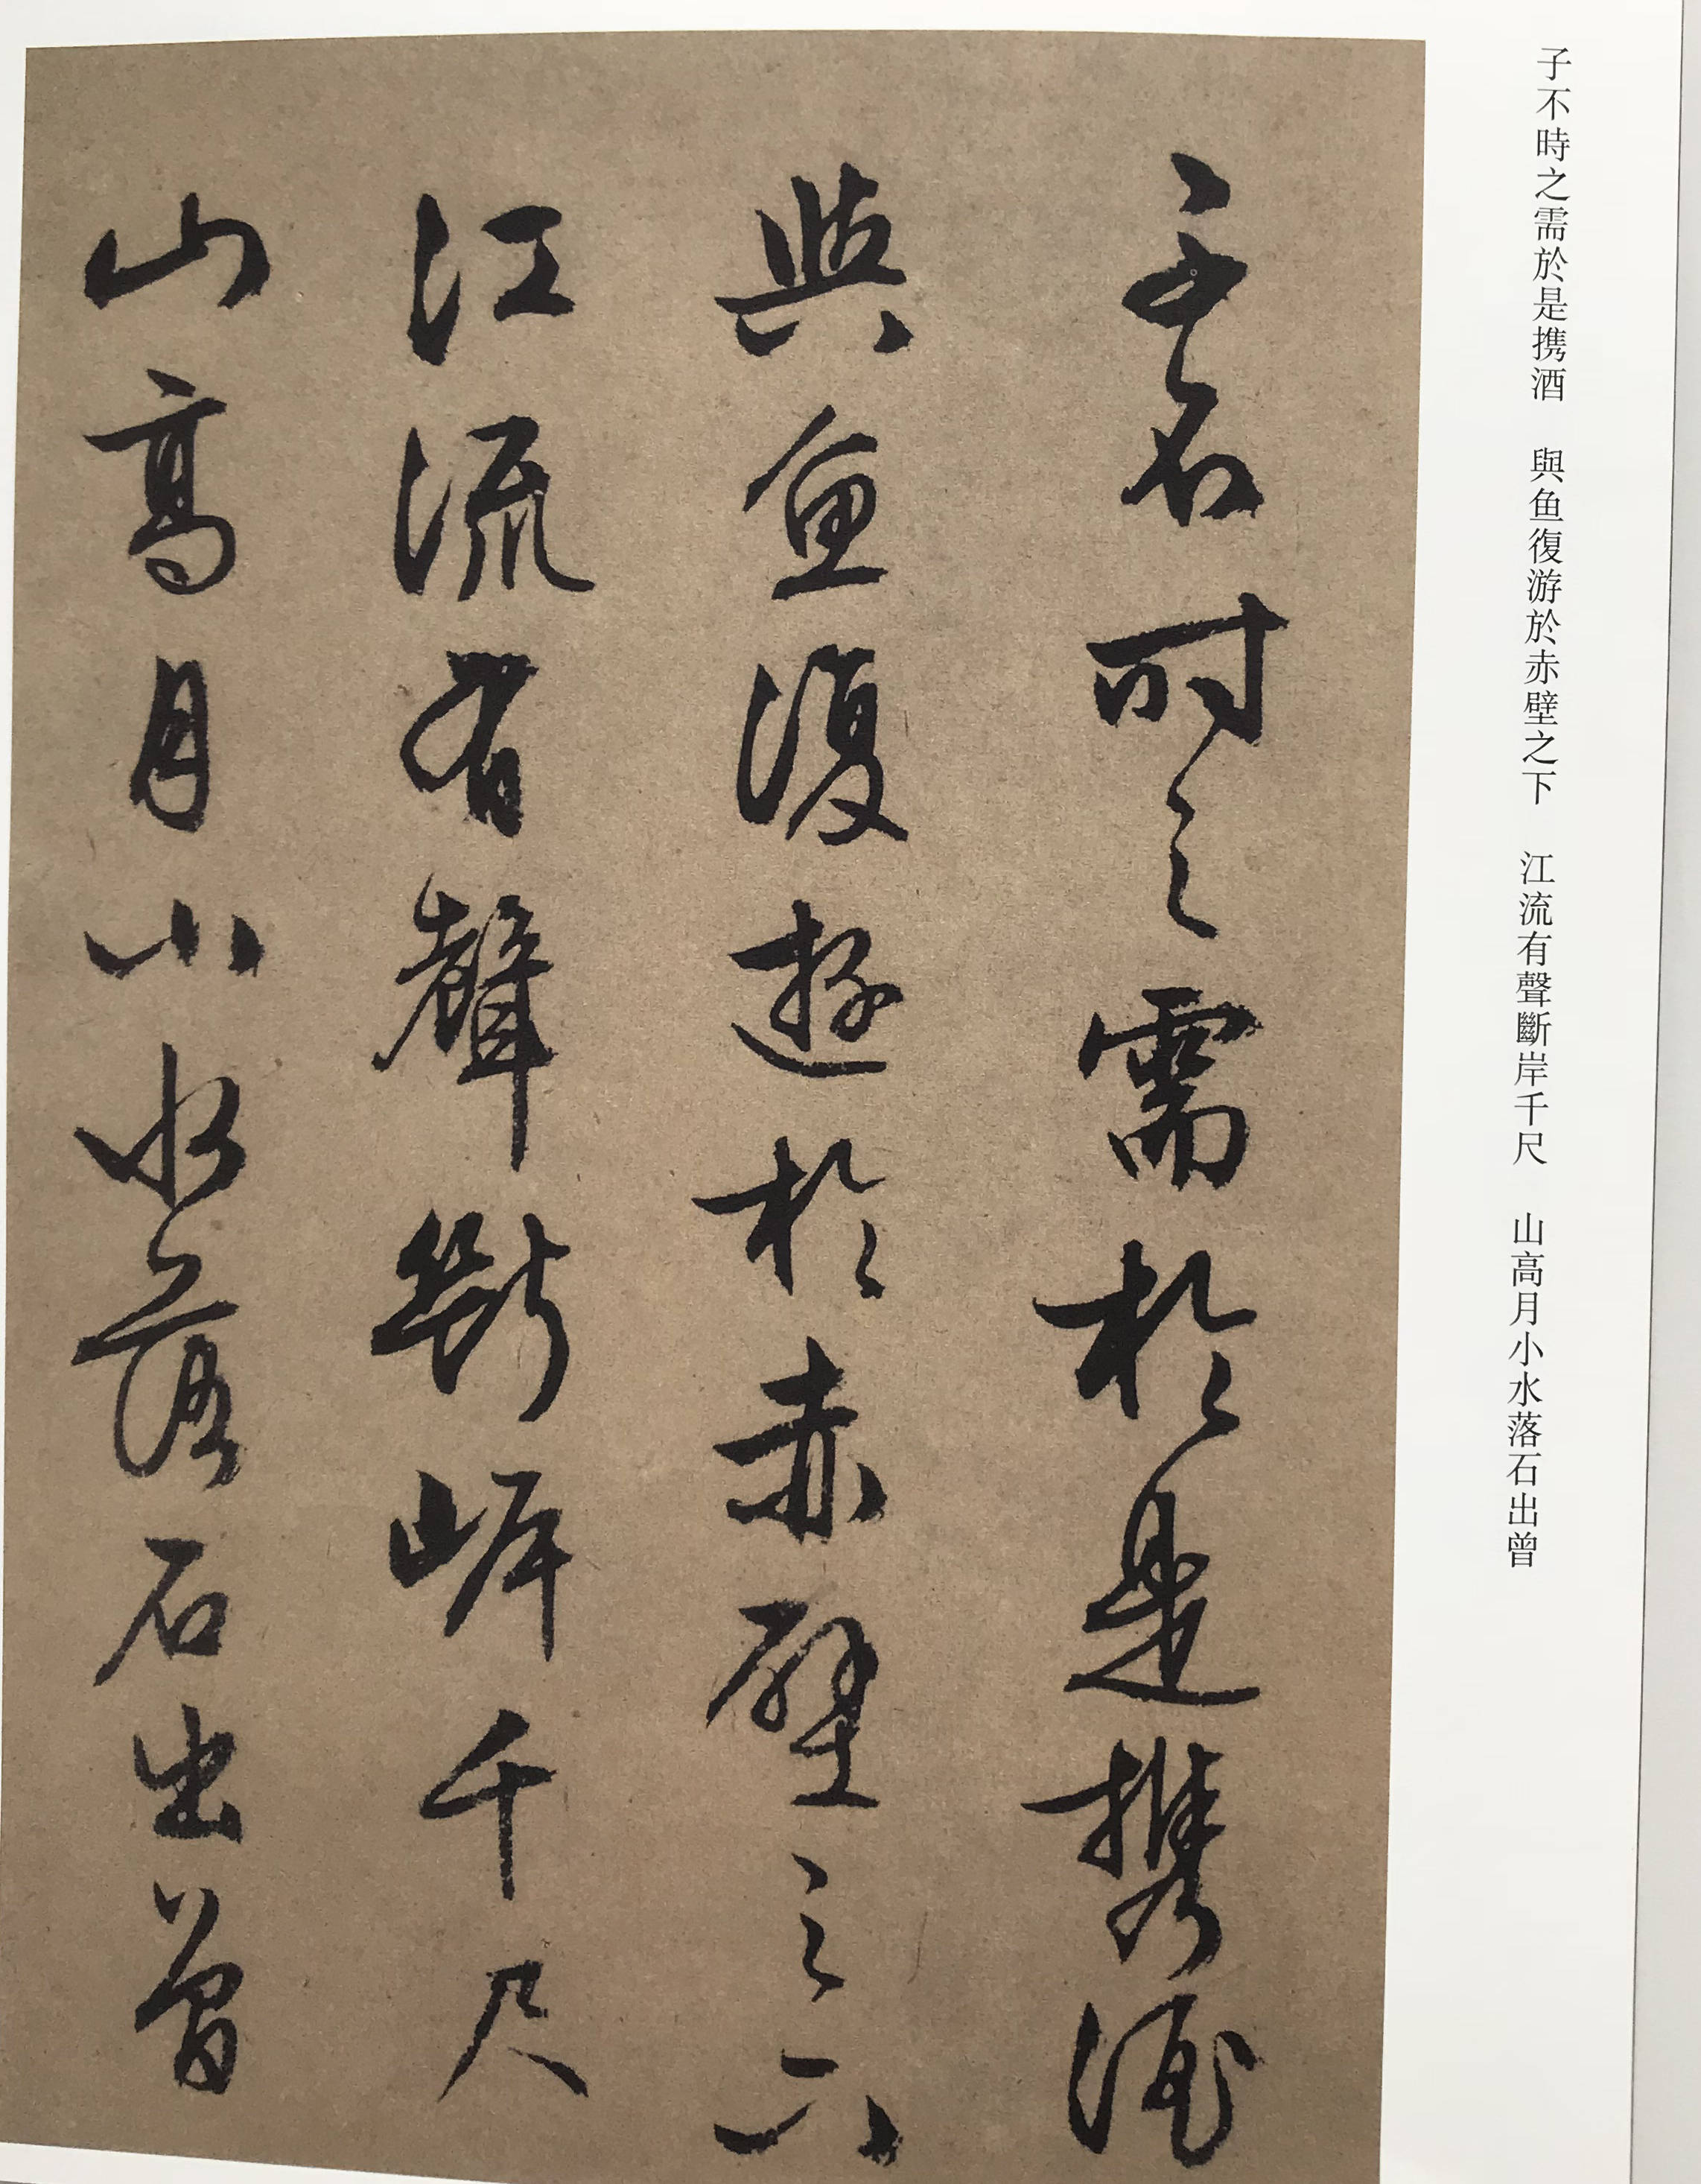 子不時之需於是携酒　與鱼復游於赤壁之下　江流有聲斷岸千尺　山高月小水落石出曾
子不時之需於是攜酒
與魚復遊於赤壁之下
江流有聲斷岸千尺
山高月小水落石出曾